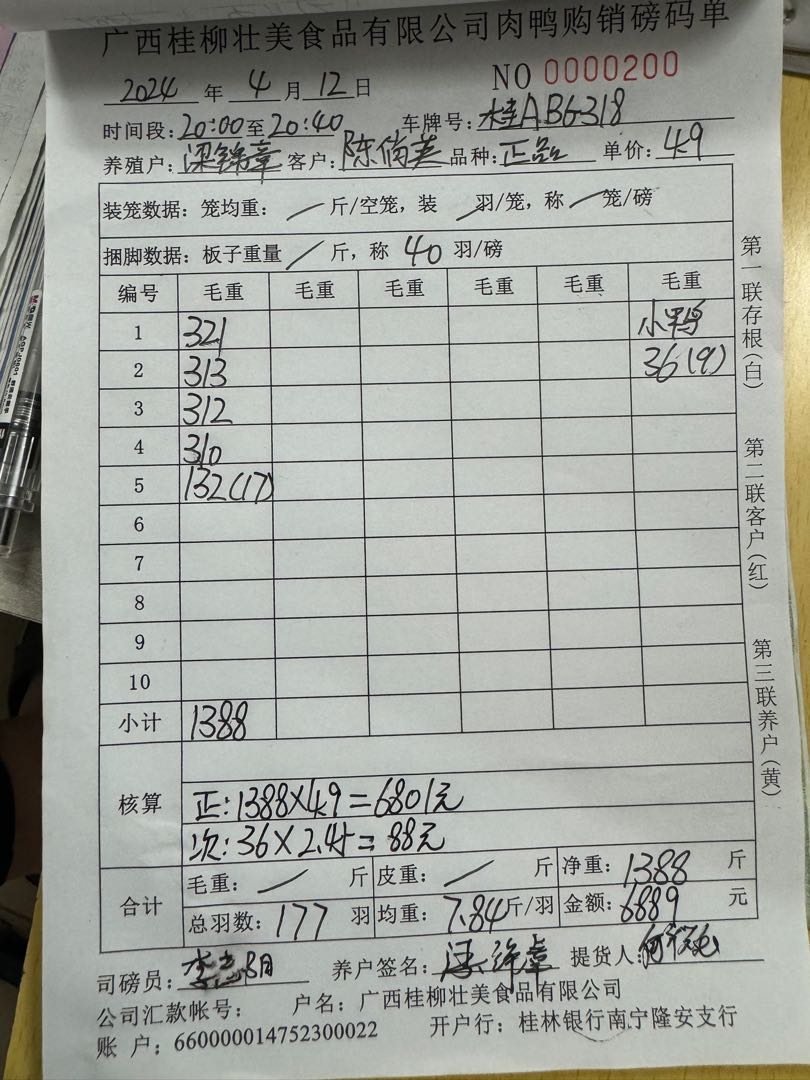 广西桂柳壮美食品有限公司肉鸭购销磅码单
2024 年 4 月 12 日 NO 0000200
时间段:20:00至20:40 车牌号:桂AB6318
养殖户:梁锦章 客户:陈尚美 品种:正品 单价:4.9
装笼数据:笼均重: / 斤/空笼,装 / 羽/笼,称 / 笼/磅
捆脚数据:板子重量 / 斤,称 40 羽/磅
编号 毛重 毛重 毛重 毛重 毛重 毛重
1 321 小鸭
2 313 36(9)
3 312
4 310
5 132(17)
6
7
8
9
10
小计 1388
核算
正:1388×4.9=6801元
次:36×2.45=88元
合计
毛重: / 斤 皮重: / 斤 净重:1388 斤
总羽数:177 羽 均重:7.84斤/羽 金额:6889 元
司磅员: 养户签名:梁锦章 提货人:
公司汇款帐号: 户名:广西桂柳壮美食品有限公司
账 户:660000014752300022 开户行:桂林银行南宁隆安支行
第一联存根(白)
第二联客户(红)
第三联养户(黄)